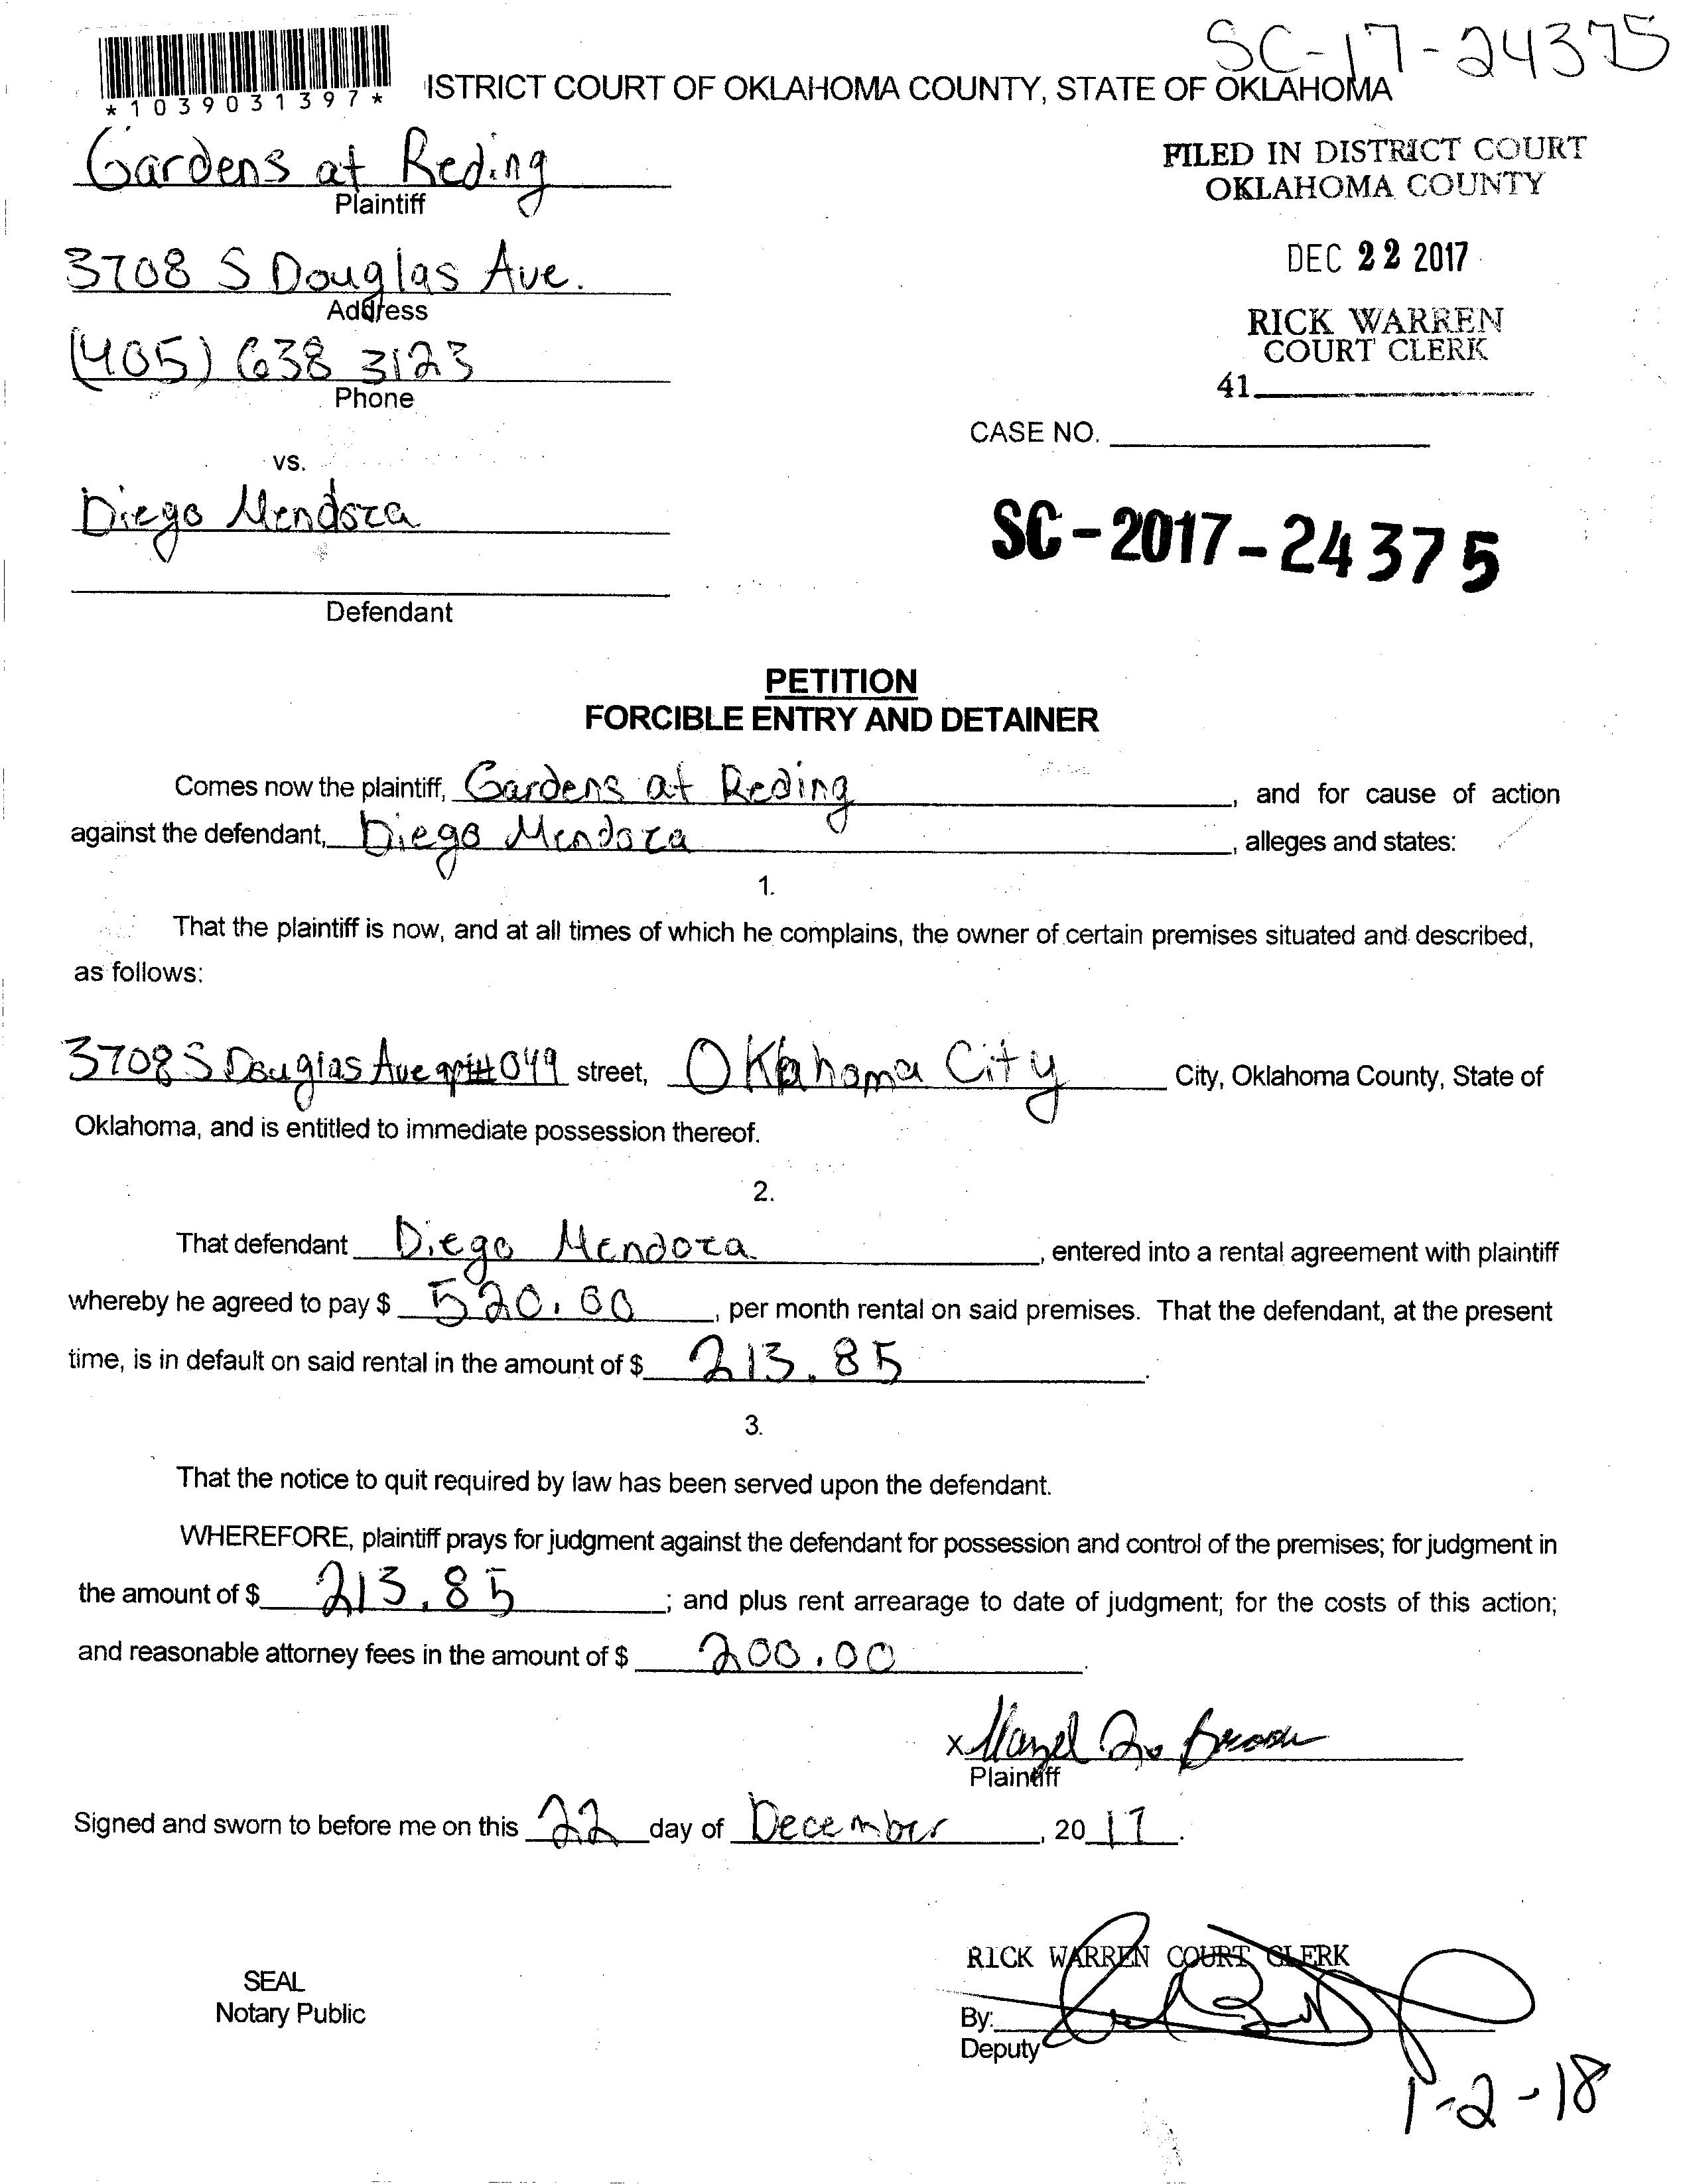 SC-17-24375
*1039031397*
ISTRICT COURT OF OKLAHOMA COUNTY, STATE OF OKLAHOMA
Gardens at Reding
Plaintiff
FILED IN DISTRICT COURT
OKLAHOMA COUNTY
3708 S Douglas Ave.
Address
DEC 22 2017
(405) 638 3123
Phone
RICK WARREN
COURT CLERK
41
CASE NO.
vs.
Diego Mendoza
SC-2017-24375
Defendant
PETITION
FORCIBLE ENTRY AND DETAINER
Comes now the plaintiff, Gardens at Reding, and for cause of action
against the defendant, Diego Mendoza, alleges and states:
1.
That the plaintiff is now, and at all times of which he complains, the owner of certain premises situated and described,
as follows:
3708 S Douglas Ave apt# 049 street, Oklahoma City City, Oklahoma County, State of
Oklahoma, and is entitled to immediate possession thereof.
2.
That defendant Diego Mendoza, entered into a rental agreement with plaintiff
whereby he agreed to pay $ 520.00, per month rental on said premises. That the defendant, at the present
time, is in default on said rental in the amount of $ 213.85.
3.
That the notice to quit required by law has been served upon the defendant.
WHEREFORE, plaintiff prays for judgment against the defendant for possession and control of the premises; for judgment in
the amount of $ 213.85; and plus rent arrearage to date of judgment; for the costs of this action;
and reasonable attorney fees in the amount of $ 200.00.
x
Plaintiff
Signed and sworn to before me on this 22 day of December, 2017.
RICK WARREN COURT CLERK
SEAL
Notary Public
By:
Deputy
1-2-18